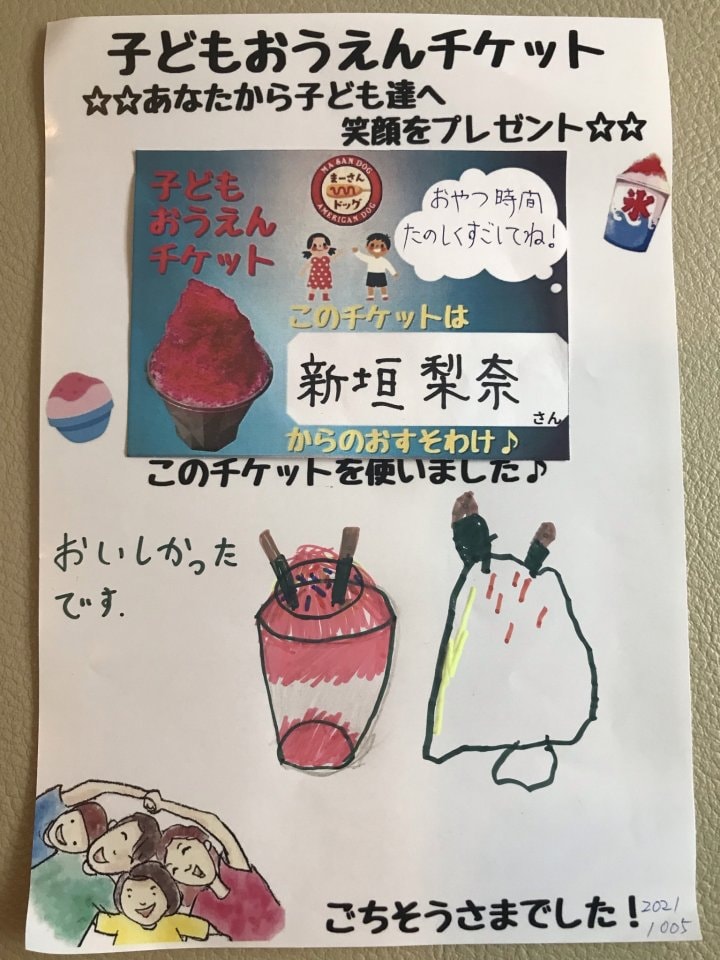 子どもおうえんチケット
☆☆あなたから子ども達へ
笑顔をプレゼント☆☆
子ども
おうえん
チケット
MA SAN DOG
まーさん
ドッグ
AMERICAN DOG
おやつ時間
たのしくすごしてね!
氷
このチケットは
新垣 梨奈
さん
からのおすそわけ♪
このチケットを使いました♪
おいしかった
です.
ごちそうさまでした!
2021
1005